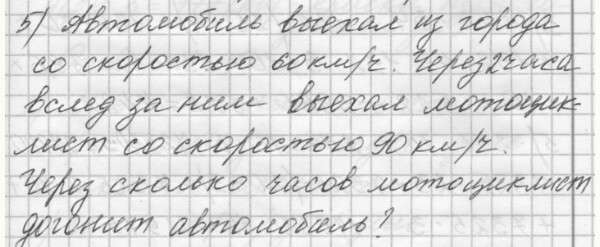 5) Автомобиль выехал из города
со скоростью 60 км/ч. Через 2 часа
вслед за ним выехал мотоцик-
лист со скоростью 90 км/ч.
Через сколько часов мотоциклист
догонит автомобиль?